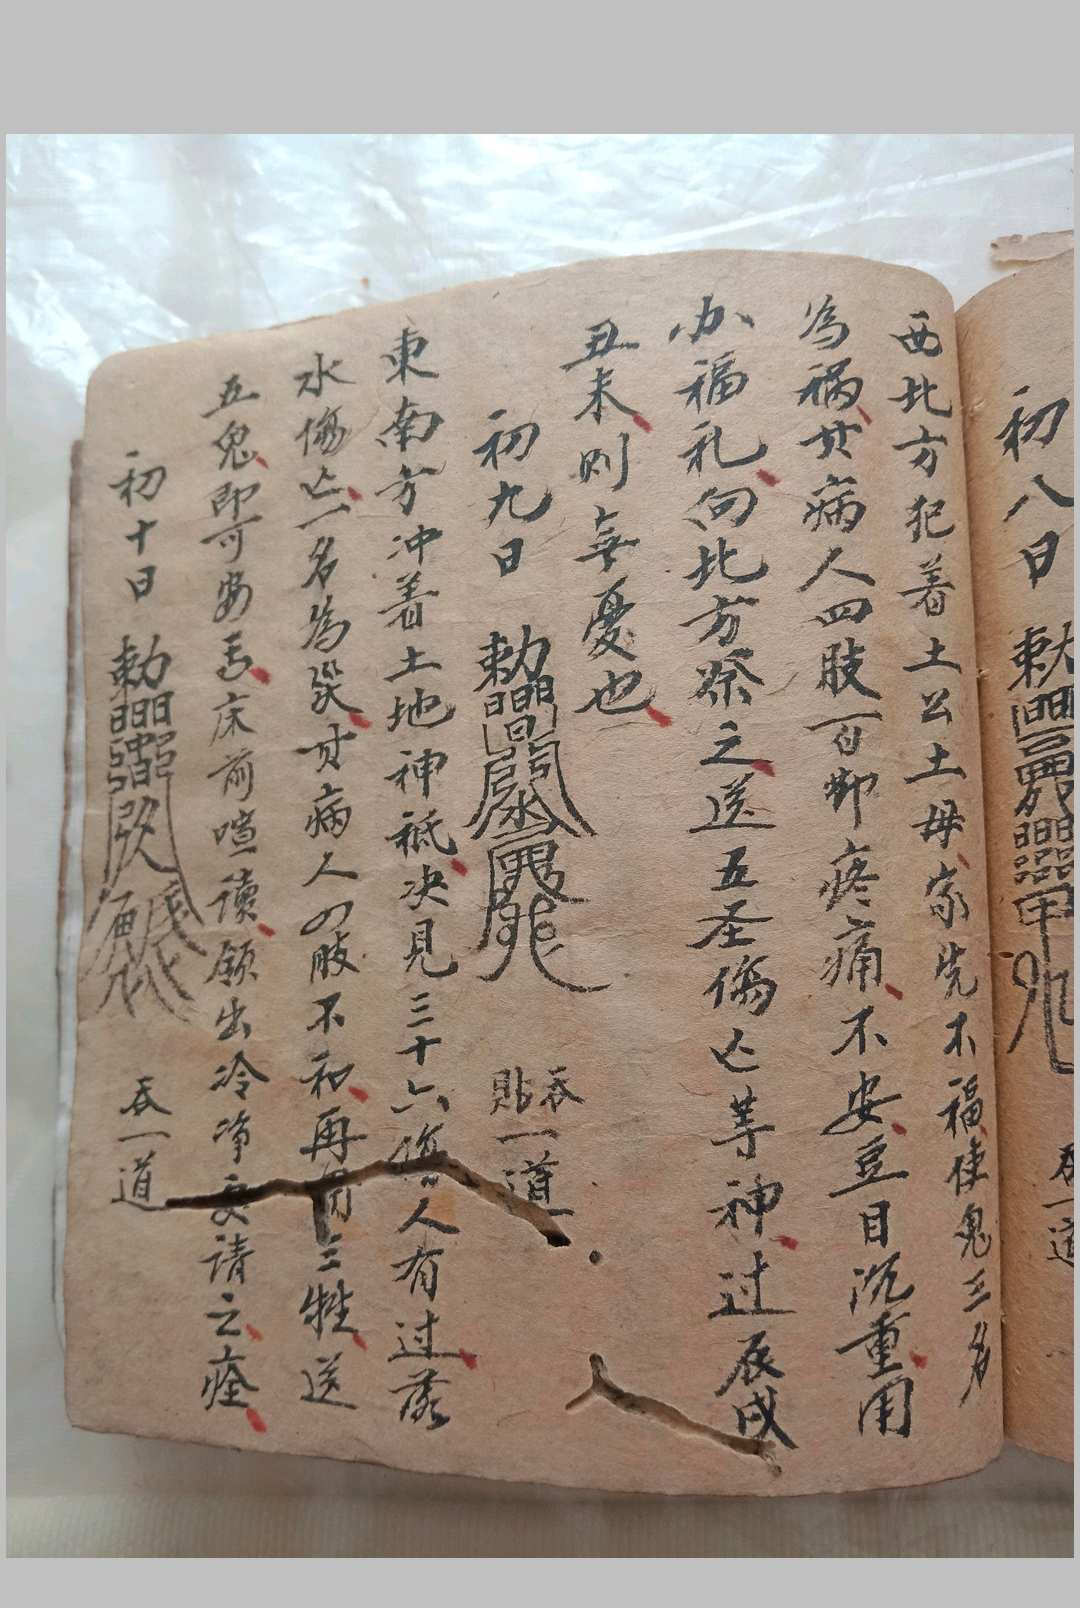 初八日
一道
西北方犯着土公土母家先不福使鬼三名
為祸其病人四肢百节疼痛不安豆目沉重用
办福礼向北方祭之送五圣傷亡等神过辰戌
丑未则無憂也
初九日 勅 吞貼一道
東南方冲着土地神祗决见三十六傷人有过落
水傷亡一名為災其病人の肢不和再用三牲送
五鬼即可安吉床前喧读领出冷净更请之痊
初十日 勅 吞一道